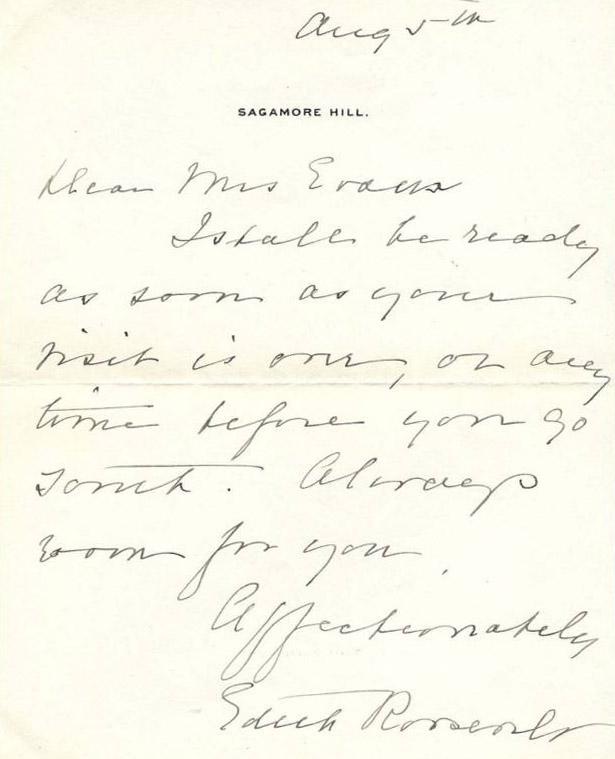 Aug 5th
SAGAMORE HILL.
Dear Mrs Evans
I shall be ready
as soon as your
visit is over, or any
time before you go
south. Always
room for you.
Affectionately
Edith Roosevelt